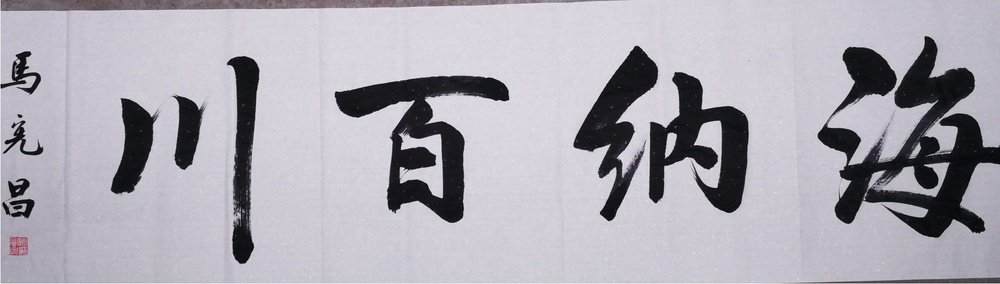 海纳百川
馬亮昌